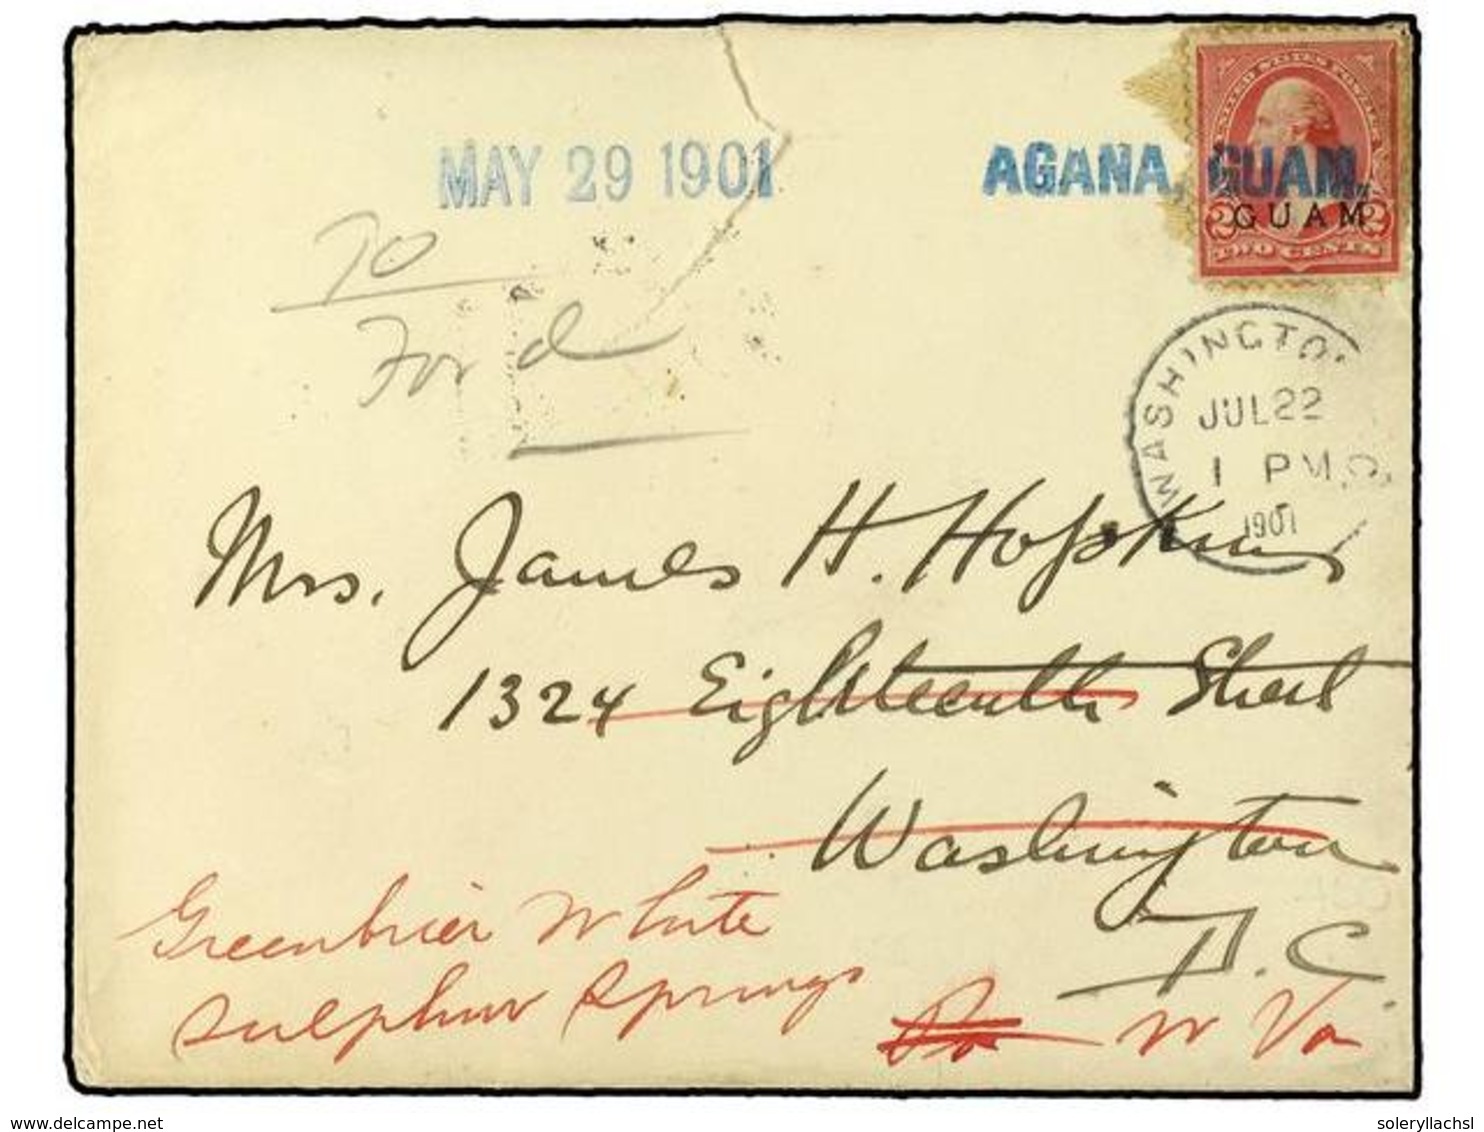 UNITED STATES POSTAGE
MAY 29 1901 AGANA, GUAM.
GUAM
2 2
TWO CENTS
To
Ford
WASHINGTON
JUL 22
1 PM
1901
Mrs. James H. Hopkins
1324 Eighteenth Street
Washington
D.C.
Greenbrier White
Sulphur Springs
W Va
delcampe.net
soleryllachsl